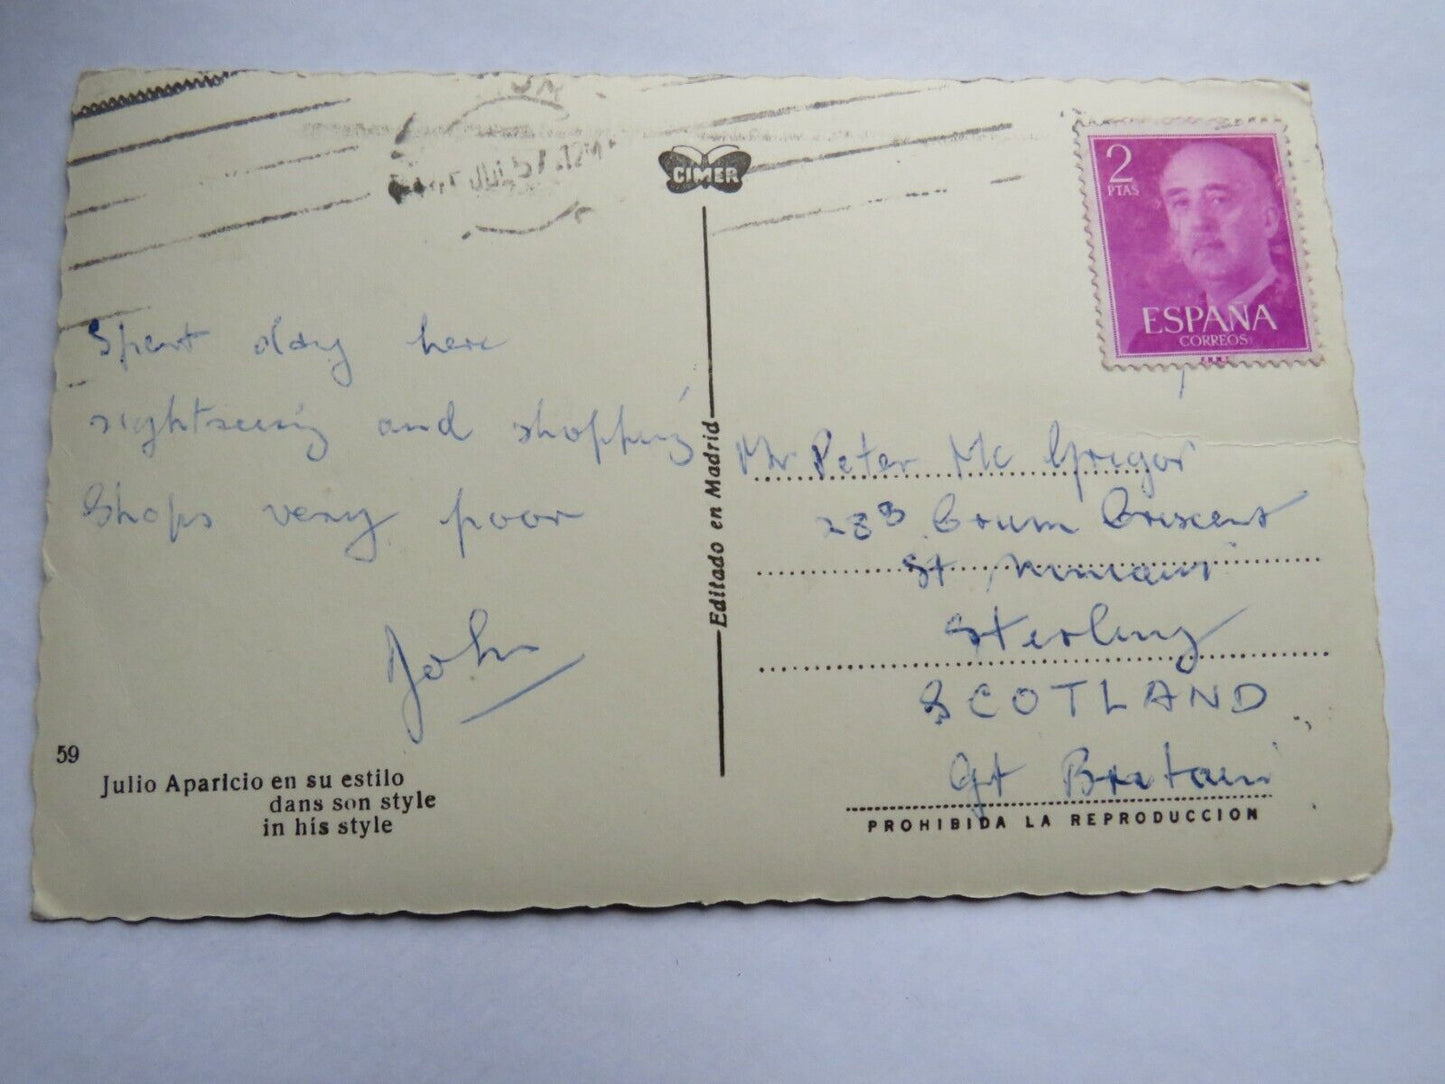 JUL 57 .12M
CIMER
2
PTAS
ESPAÑA
CORREOS
Spent day here
sightseeing and shopping
Shops very poor
John
Editado en Madrid
Mr Peter Mc Gregor
28B Crum Crescent
St Ninians
Sterling
SCOTLAND
Gt Britain
59
Julio Aparicio en su estilo
dans son style
in his style
PROHIBIDA LA REPRODUCCION